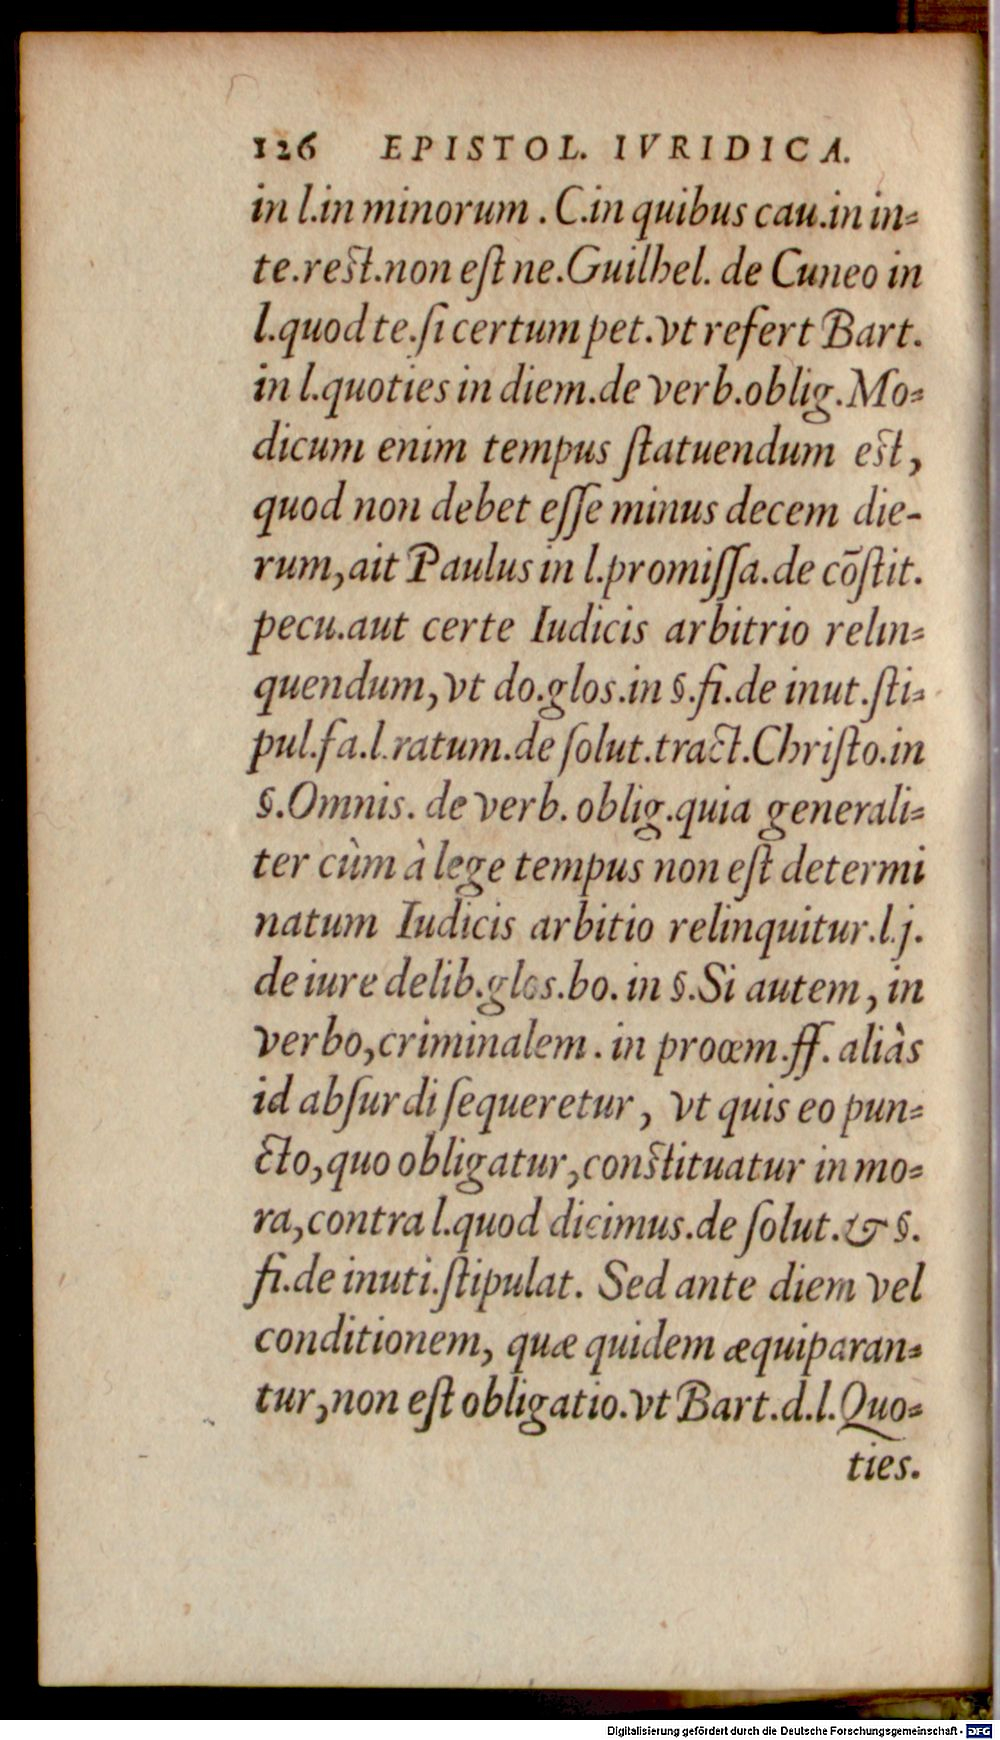 126 EPISTOL. IVRIDICA.
in l.in minorum . C.in quibus cau.in in=
te.rest.non eſt ne.Guilhel. de Cuneo in
l.quod te.ſi certum pet.vt refert Bart.
in l.quoties in diem.de verb.oblig.Mo=
dicum enim tempus ſtatuendum est,
quod non debet eſſe minus decem die-
rum,ait Paulus in l.promiſſa.de cōſtit.
pecu.aut certe Iudicis arbitrio relin=
quendum,vt do.glos.in §.fi.de inut.ſti=
pul.fa.l.ratum.de ſolut.tract.Chriſto.in
§.Omnis. de verb. oblig.quia generali=
ter cùm à lege tempus non eſt determi
natum Iudicis arbitio relinquitur.l.j.
de iure delib.glos.bo. in §.Si autem, in
verbo,criminalem. in proœm.ff. aliàs
id abſurdi ſequeretur, vt quis eo pun=
cto,quo obligatur,constituatur in mo=
ra,contra l.quod dicimus.de ſolut.& §.
fi.de inuti.ſtipulat. Sed ante diem vel
conditionem, quæ quidem æquiparan=
tur,non eſt obligatio.vt Bart.d.l.Quo=
ties.
Digitalisierung gefördert durch die Deutsche Forschungsgemeinschaft - DFG